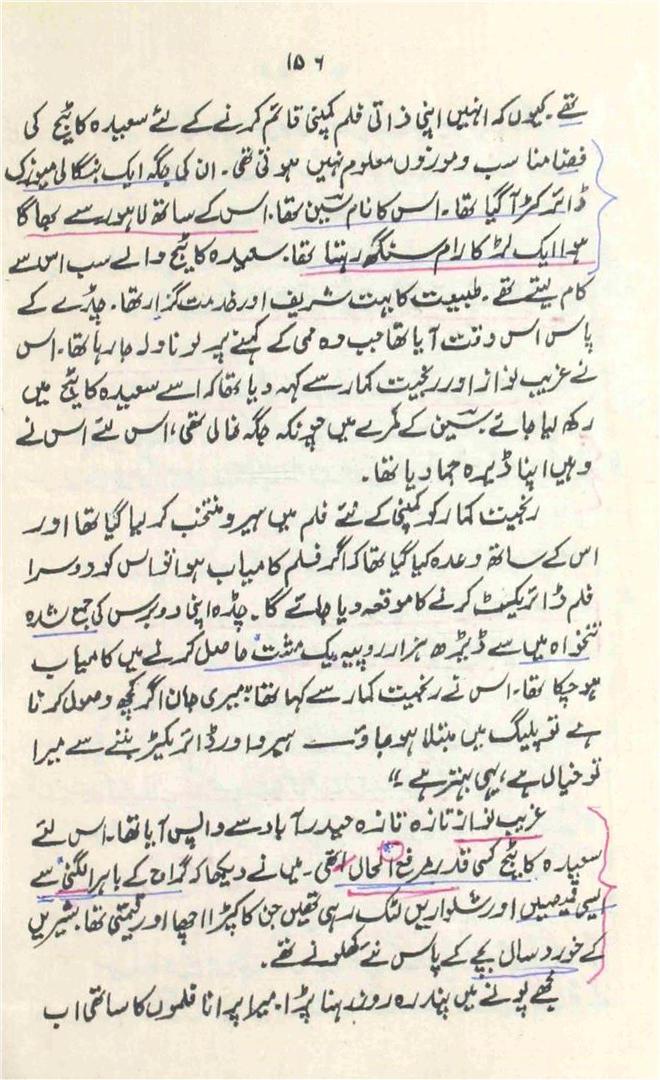 ۱۵۶
تھے۔ کیوں کہ انہیں اپنی ذاتی فلم کمپنی قائم کرنے کے لئے سعیدہ کاٹیج کی
فضا مناسب و موزوں معلوم نہیں ہوتی تھی۔ ان کی جگہ ایک بنگالی میوزک
ڈائرکٹر آ گیا تھا۔ اس کا نام سین تھا۔ اس کے ساتھ لاہور سے بھاگا
ہوا ایک لڑکا رام سنگھ رہتا تھا۔ سعیدہ کاٹیج والے سب اس سے
کام لیتے تھے۔ طبیعت کا بہت شریف اور خدمت گزار تھا۔ چڈے کے
پاس اس وقت آیا تھا جب وہ ممی کے کہنے پر لوناولہ جا رہا تھا۔ اس
نے غریب نواز اور رنجیت کمار سے کہہ دیا تھا کہ اسے سعیدہ کاٹیج میں
رکھ لیا جائے۔ سین کے کمرے میں چونکہ جگہ خالی تھی، اس لئے اس نے
وہیں اپنا ڈیرہ جما دیا تھا۔
رنجیت کمار کو کمپنی کے نئے فلم میں ہیرو منتخب کر لیا گیا تھا اور
اس کے ساتھ وعدہ کیا گیا تھا کہ اگر فلم کامیاب ہوا تو اس کو دوسرا
فلم ڈائریکٹ کرنے کا موقعہ دیا جائے گا۔ چڈہ اپنی دو برس کی جمع شدہ
تنخواہ میں سے ڈیڑھ ہزار روپیہ یک مشت حاصل کرنے میں کامیاب
ہو چکا تھا۔ اس نے رنجیت کمار سے کہا تھا: "میری جان اگر کچھ وصول کرنا
ہے تو پلیگ میں مبتلا ہو جاؤ۔ ہیرو اور ڈائریکٹر بننے سے میرا
تو خیال ہے، یہی بہتر ہے۔"
غریب نواز تازہ تازہ حیدر آباد سے واپس آیا تھا۔ اس لئے
سعیدہ کاٹیج کسی قدر مرفع الحال تھی۔ میں نے دیکھا کہ گراج کے باہر الگنی سے
ایسی قمیصیں اور شلواریں لٹک رہی تھیں جن کا کپڑا اچھا اور قیمتی تھا۔ شیریں
کے خورد سال بچے کے پاس نئے کھلونے تھے۔
مجھے پونے میں پندرہ روز رہنا پڑا۔ میرا پرانا فلموں کا ساتھی اب